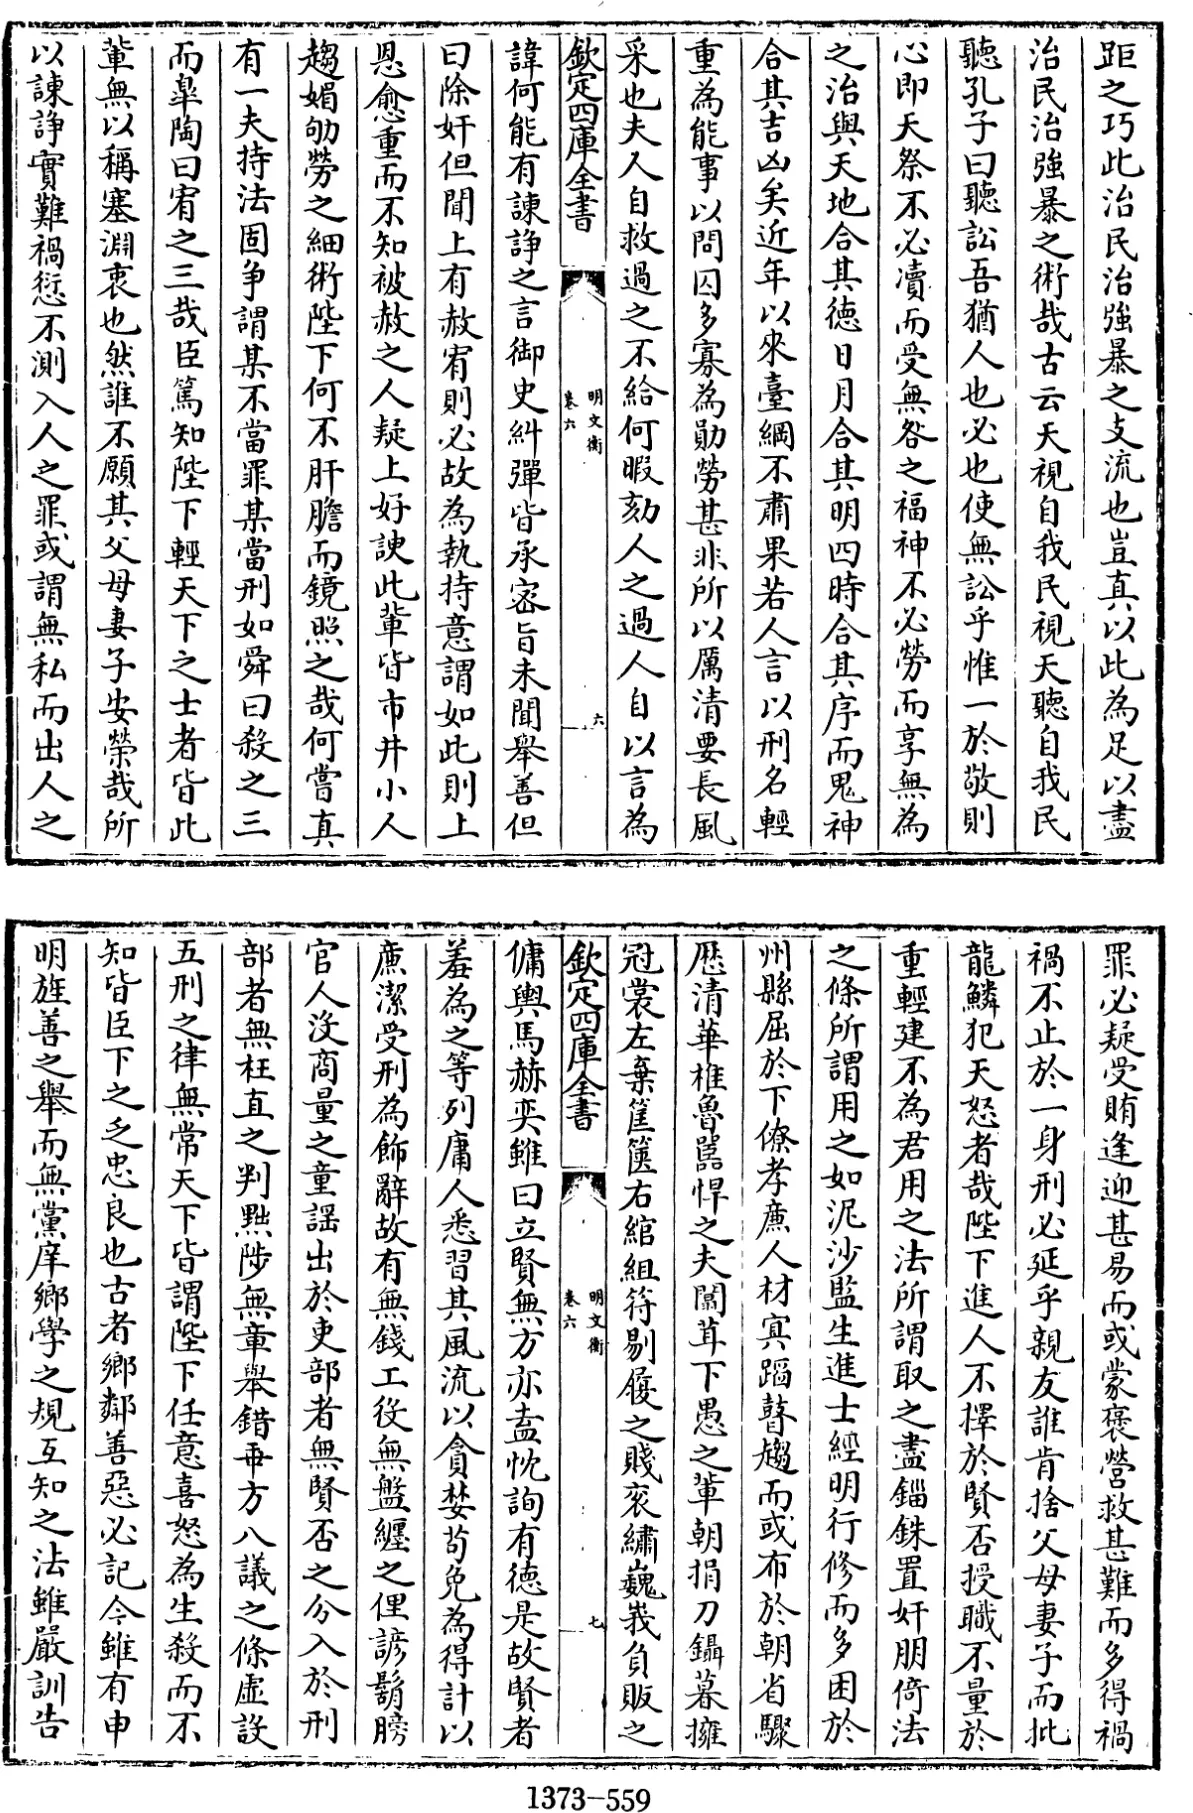 距之巧此治民治強暴之支流也豈真以此為足以盡
治民治強暴之術哉古云天視自我民視天聽自我民
聽孔子曰聽訟吾猶人也必也使無訟乎惟一於敬則
心即天祭不必瀆而受無咎之福神不必勞而享無為
之治與天地合其德日月合其明四時合其序而鬼神
合其吉凶矣近年以來臺綱不肅果若人言以刑名輕
重為能事以問囚多寡為勛勞甚非所以厲清要長風
采也夫人自救過之不給何暇劾人之過人自以言為
欽定四庫全書
明文衡
卷六
六
諱何能有諫諍之言御史糾彈皆承密旨未聞舉善但
曰除奸但聞上有赦宥則必故為執持意謂如此則上
恩愈重而不知被赦之人疑上好諛此輩皆市井小人
趨媚劬勞之細術陛下何不肝膽而鏡照之哉何嘗真
有一夫持法固争謂某不當罪某當刑如舜曰殺之三
而臯陶曰宥之三哉臣篤知陛下輕天下之士者皆此
輩無以稱塞淵衷也然誰不願其父母妻子安榮哉所
以諫諍實難禍愆不測入人之罪或謂無私而出人之
罪必疑受賄逢迎甚易而或蒙褒營救甚難而多得禍
禍不止於一身刑必延乎親友誰肯捨父母妻子而批
龍鱗犯天怒者哉陛下進人不擇於賢否授職不量於
重輕建不為君用之法所謂取之盡錙銖置奸朋倚法
之條所謂用之如泥沙監生進士經明行修而多困於
州縣屈於下僚孝廉人材冥蹈瞽趨而或布於朝省驟
歷清華椎魯嚚悍之夫闒茸下愚之軰朝捐刀鑷暮擁
冠裳左棄筐篋右綰組符剔履之賤衮繡巍峩負販之
欽定四庫全書
明文衡
卷六
七
傭輿馬赫奕雖曰立賢無方亦盍忱詢有德是故賢者
羞為之等列庸人悉習其風流以貪婪苟免為得計以
廉潔受刑為飾辭故有無錢工役無盤纏之俚諺剺膀
官人沒商量之童謡出於吏部者無賢否之分入於刑
部者無枉直之判黜陟無章舉錯乖方八議之條虛設
五刑之律無常天下皆謂陛下任意喜怒為生殺而不
知皆臣下之乏忠良也古者鄉鄰善惡必記今雖有申
明旌善之舉而無黨庠鄉學之規互知之法雖嚴訓告
1373—559